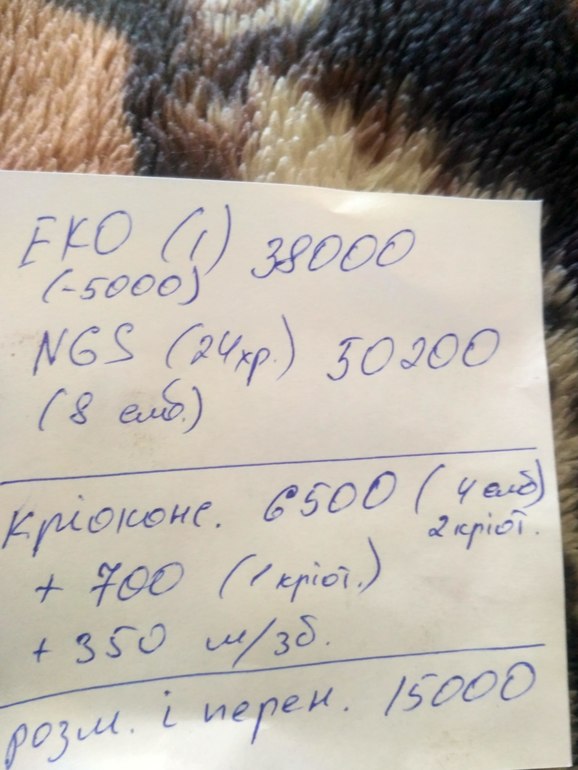 ЕКО (1) 38000
(-5000)
NGS (24хр.) 50200
(8 емб.)
Кріоконс. 6500 (4 емб)
2 кріот.
+ 700 (1 кріот.)
+ 350 м/зб.
розм. і перен. 15000